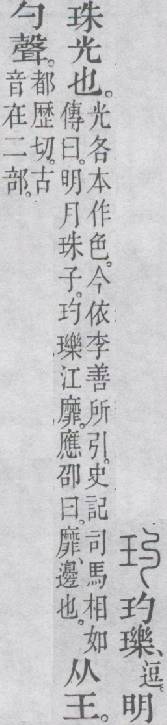 玓 玓瓅、逗。明
珠光也。光各本作色。今依李善所引。史記司馬相如
傳曰。明月珠子。玓瓅江靡。應邵曰。靡、邊也。从王。
勺聲。都歴切。古
音在二部。